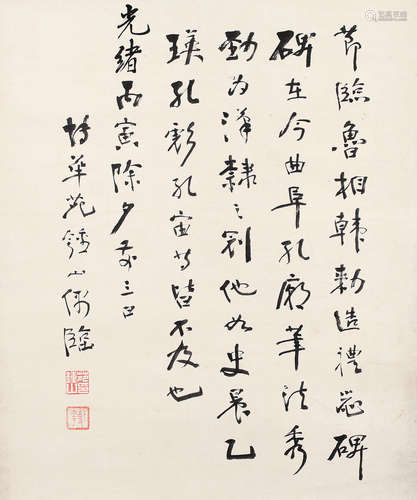 節臨魯相韓勅造禮器碑
碑在今曲阜孔廟筆法秀
勁为漢隸之冠他如史晨乙
瑛孔彪孔宙等皆不及也
光緒丙寅除夕前三日
華苑山臨